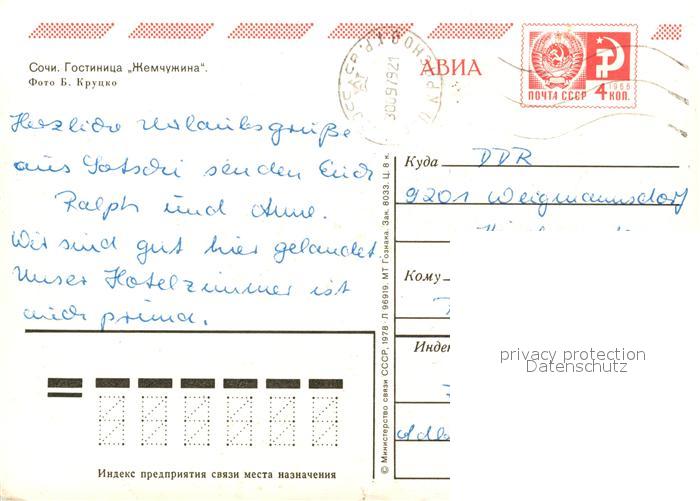 Сочи. Гостиница „Жемчужина“.
Фото Б. Круцко
АВИА
ПОЧТА СССР
1966
4 КОП.
Herzliche Urlaubsgrüße
aus Sotschi senden Euch
Ralph und Anne.
Wir sind gut hier gelandet.
Unser Hotelzimmer ist
auch prima.
Куда DDR
9201 Weigmannsdorf
Кому
Индек
privacy protection
Datenschutz
Индекс предприятия связи места назначения
© Министерство связи СССР, 1978 · Л 96919. МТ Гознака. Зак. 8033. Ц. 8 к.